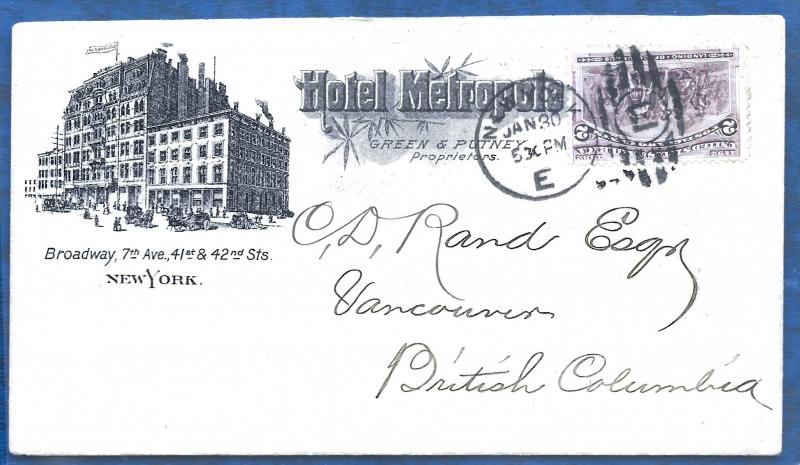 Hotel Metropole
GREEN & PUTNEY,
Proprietors.
Broadway, 7th Ave., 41st & 42nd Sts.
NEW YORK.
JAN 30
PM
E
LANDING OF
2
C. D. Rand Esqr
Vancouver
British Columbia